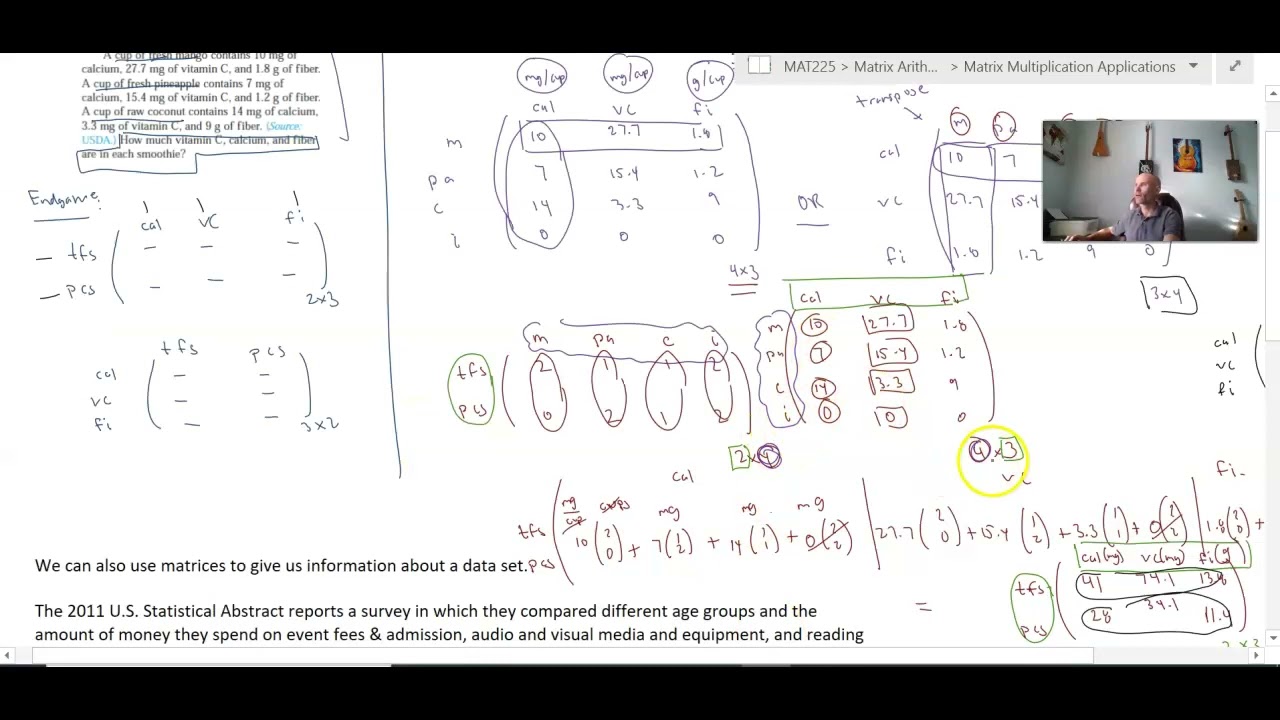 A cup of fresh mango contains 10 mg of
calcium, 27.7 mg of vitamin C, and 1.8 g of fiber.
A cup of fresh pineapple contains 7 mg of
calcium, 15.4 mg of vitamin C, and 1.2 g of fiber.
A cup of raw coconut contains 14 mg of calcium,
3.3 mg of vitamin C, and 9 g of fiber. (Source:
USDA.) How much vitamin C, calcium, and fiber
are in each smoothie?
MAT225 > Matrix Arith... > Matrix Multiplication Applications
mg/cup mg/cup g/cup
cal vc fi
m 10 27.7 1.8
pa 7 15.4 1.2
c 14 3.3 9
i 0 0 0
4x3
transpose
m pa
cal 10 7
OR
vc 27.7 15.4
fi 1.8 1.2 9 0
3x4
Endgame:
cal vc fi
tfs
pcs
2x3
tfs pcs
cal
vc
fi
3x2
m pa c i
tfs 2 1 1 2
pcs 0 2 1 2
2x4
cal vc fi
m 10 27.7 1.8
pa 7 15.4 1.2
c 14 3.3 9
i 0 0 0
4x3
cal
vc
fi
cal vc fi
mg/cup cups mg mg mg
tfs
pcs
10(2 0) + 7(1 2) + 14(1 1) + 0(2 2)
27.7(2 0) + 15.4(1 2) + 3.3(1 1) + 0(2 2)
1.8(2 0) +
=
cal(mg) vc(mg) fi(g)
tfs 41 74.1 13.8
pcs 28 34.1 11.4
We can also use matrices to give us information about a data set.
The 2011 U.S. Statistical Abstract reports a survey in which they compared different age groups and the
amount of money they spend on event fees & admission, audio and visual media and equipment, and reading